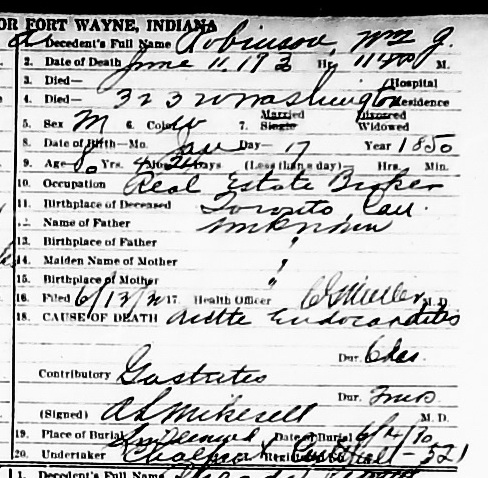 OR FORT WAYNE, INDIANA
Decedent's Full Name Robinson, Wm J.
2. Date of Death June 11, 193 Hr. 11 400 M.
3. Died— Hospital
4. Died— 323 W Washington Residence
5. Sex M 6. Color W 7. Married Single Divorced Widowed
8. Date of Birth—Mo. Jan Day— 17 Year 1850
9. Age 80 Yrs. 4 Mos. 24 Days (Less than a day)— Hrs. Min.
10. Occupation Real Estate Broker
11. Birthplace of Deceased Toronto, Can.
12. Name of Father Unknown
13. Birthplace of Father "
14. Maiden Name of Mother "
15. Birthplace of Mother "
16. Filed 6/13/30 17. Health Officer M. D.
18. CAUSE OF DEATH Acute Endocarditis
Dur. 6 das.
Contributory Gastritis
Dur. 3 mos
(Signed) A L Mikesell M. D.
19. Place of Burial Lindenwood Date of Burial 6/14/30
20. Undertaker Chalfant - 521
1. Decedent's Full Name